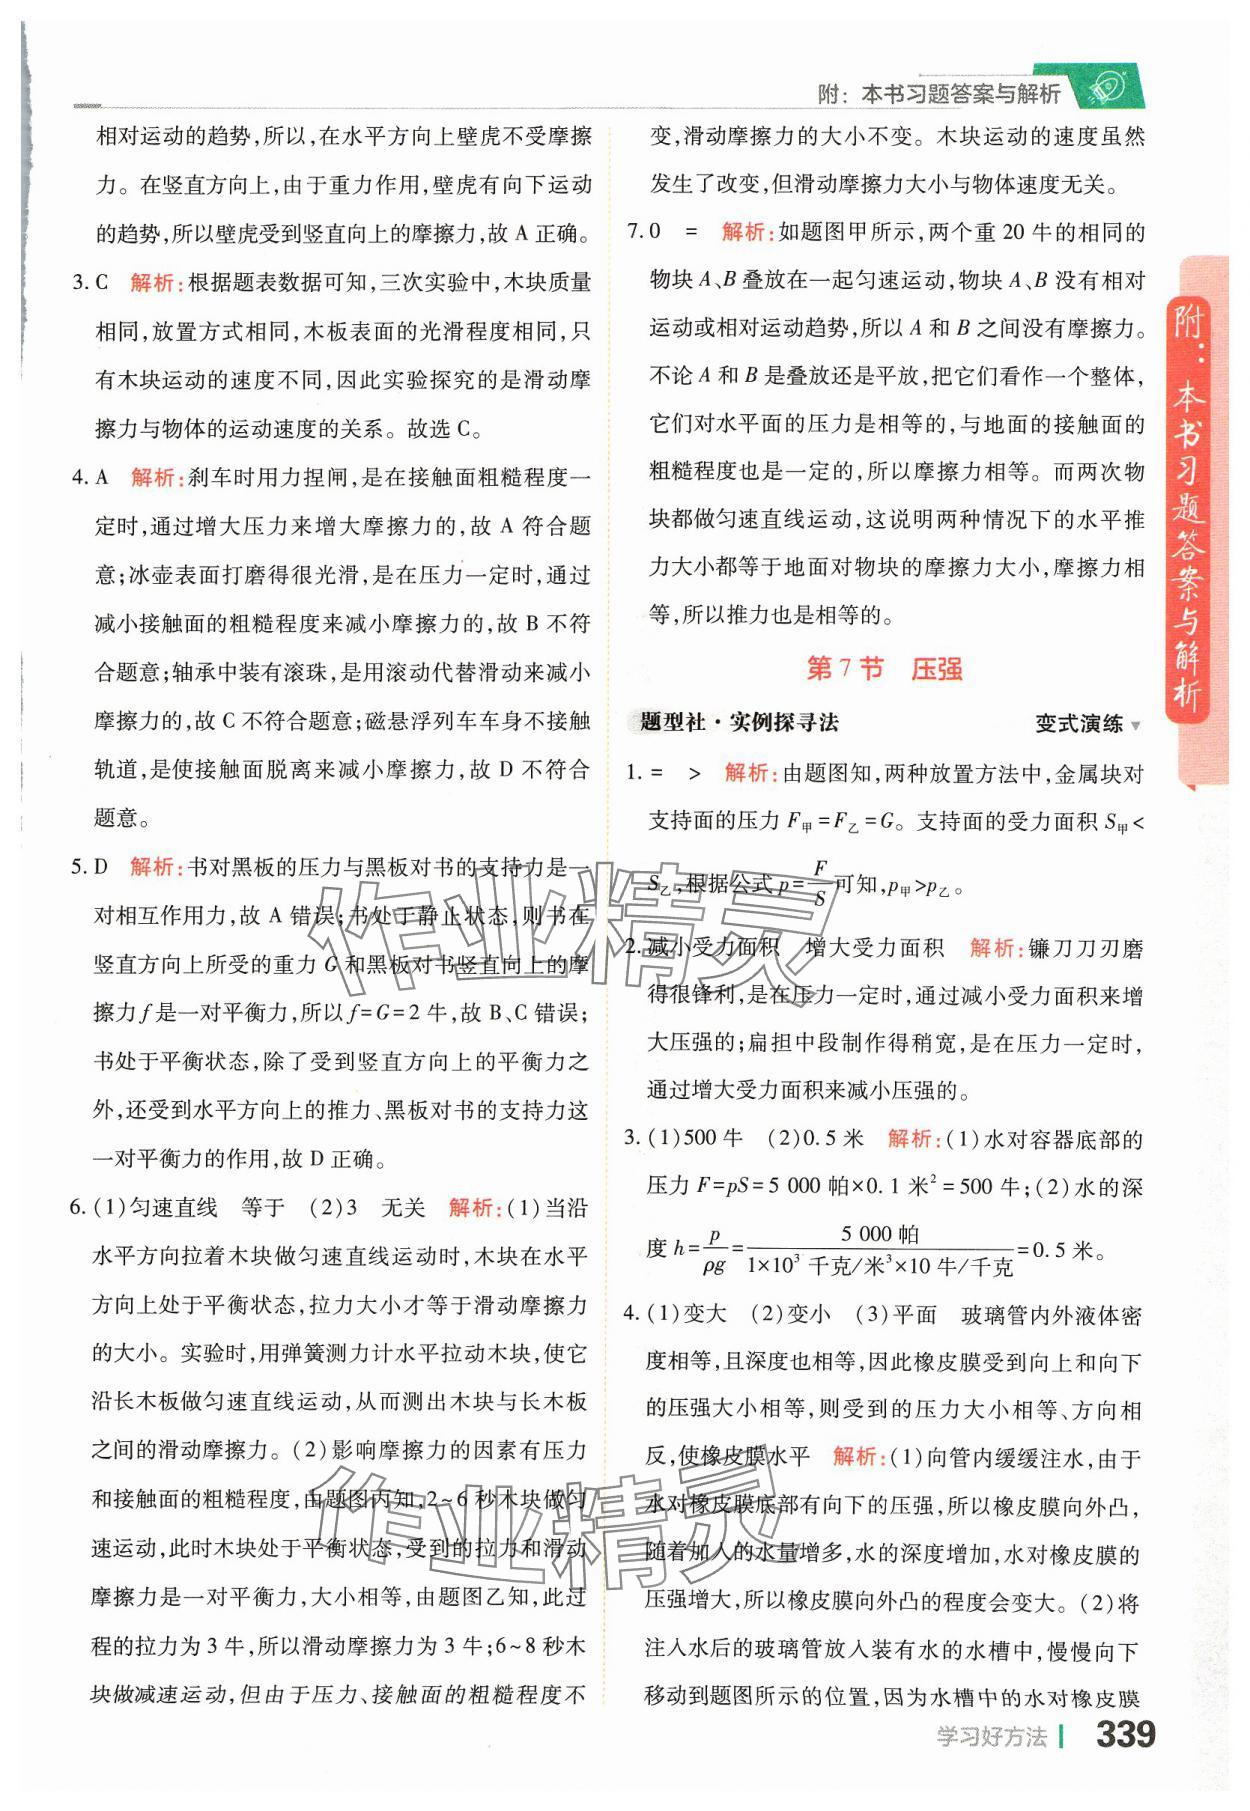 附：本书习题答案与解析
相对运动的趋势,所以,在水平方向上壁虎不受摩擦
力。在竖直方向上,由于重力作用,壁虎有向下运动
的趋势,所以壁虎受到竖直向上的摩擦力,故 A 正确。
3. C 解析:根据题表数据可知,三次实验中,木块质量
相同,放置方式相同,木板表面的光滑程度相同,只
有木块运动的速度不同,因此实验探究的是滑动摩
擦力与物体的运动速度的关系。故选 C。
4. A 解析:刹车时用力捏闸,是在接触面粗糙程度一
定时,通过增大压力来增大摩擦力的,故 A 符合题
意;冰壶表面打磨得很光滑,是在压力一定时,通过
减小接触面的粗糙程度来减小摩擦力的,故 B 不符
合题意;轴承中装有滚珠,是用滚动代替滑动来减小
摩擦力的,故 C 不符合题意;磁悬浮列车车身不接触
轨道,是使接触面脱离来减小摩擦力,故 D 不符合
题意。
5. D 解析:书对黑板的压力与黑板对书的支持力是一
对相互作用力,故 A 错误;书处于静止状态,则书在
竖直方向上所受的重力 G 和黑板对书竖直向上的摩
擦力 f 是一对平衡力,所以 f=G=2 牛,故 B、C 错误;
书处于平衡状态,除了受到竖直方向上的平衡力之
外,还受到水平方向上的推力、黑板对书的支持力这
一对平衡力的作用,故 D 正确。
6. (1)匀速直线 等于 (2)3 无关 解析:(1)当沿
水平方向拉着木块做匀速直线运动时,木块在水平
方向上处于平衡状态,拉力大小才等于滑动摩擦力
的大小。实验时,用弹簧测力计水平拉动木块,使它
沿长木板做匀速直线运动,从而测出木块与长木板
之间的滑动摩擦力。(2)影响摩擦力的因素有压力
和接触面的粗糙程度,由题图丙知,2~6 秒木块做匀
速运动,此时木块处于平衡状态,受到的拉力和滑动
摩擦力是一对平衡力,大小相等,由题图乙知,此过
程的拉力为 3 牛,所以滑动摩擦力为 3 牛;6~8 秒木
块做减速运动,但由于压力、接触面的粗糙程度不
变,滑动摩擦力的大小不变。木块运动的速度虽然
发生了改变,但滑动摩擦力大小与物体速度无关。
7. 0 = 解析:如题图甲所示,两个重 20 牛的相同的
物块 A、B 叠放在一起匀速运动,物块 A、B 没有相对
运动或相对运动趋势,所以 A 和 B 之间没有摩擦力。
不论 A 和 B 是叠放还是平放,把它们看作一个整体,
它们对水平面的压力是相等的,与地面的接触面的
粗糙程度也是一定的,所以摩擦力相等。而两次物
块都做匀速直线运动,这说明两种情况下的水平推
力大小都等于地面对物块的摩擦力大小,摩擦力相
等,所以推力也是相等的。
第 7 节 压强
题型社·实例探寻法 变式演练
1. = > 解析:由题图知,两种放置方法中,金属块对
支持面的压力 F甲=F乙=G。支持面的受力面积 S甲<
S乙,根据公式 p=F/S可知,p甲>p乙。
2. 减小受力面积 增大受力面积 解析:镰刀刀刃磨
得很锋利,是在压力一定时,通过减小受力面积来增
大压强的;扁担中段制作得稍宽,是在压力一定时,
通过增大受力面积来减小压强的。
3. (1)500 牛 (2)0.5 米 解析:(1)水对容器底部的
压力 F=pS=5 000 帕×0.1 米²=500 牛;(2)水的深
度 h=p/ρg=5 000 帕/1×10³ 千克/米³×10 牛/千克=0.5 米。
4. (1)变大 (2)变小 (3)平面 玻璃管内外液体密
度相等,且深度也相等,因此橡皮膜受到向上和向下
的压强大小相等,则受到的压力大小相等、方向相
反,使橡皮膜水平 解析:(1)向管内缓缓注水,由于
水对橡皮膜底部有向下的压强,所以橡皮膜向外凸,
随着加入的水量增多,水的深度增加,水对橡皮膜的
压强增大,所以橡皮膜向外凸的程度会变大。(2)将
注入水后的玻璃管放入装有水的水槽中,慢慢向下
移动到题图所示的位置,因为水槽中的水对橡皮膜
附：本书习题答案与解析
作业精灵
作业精灵
学习好方法 339